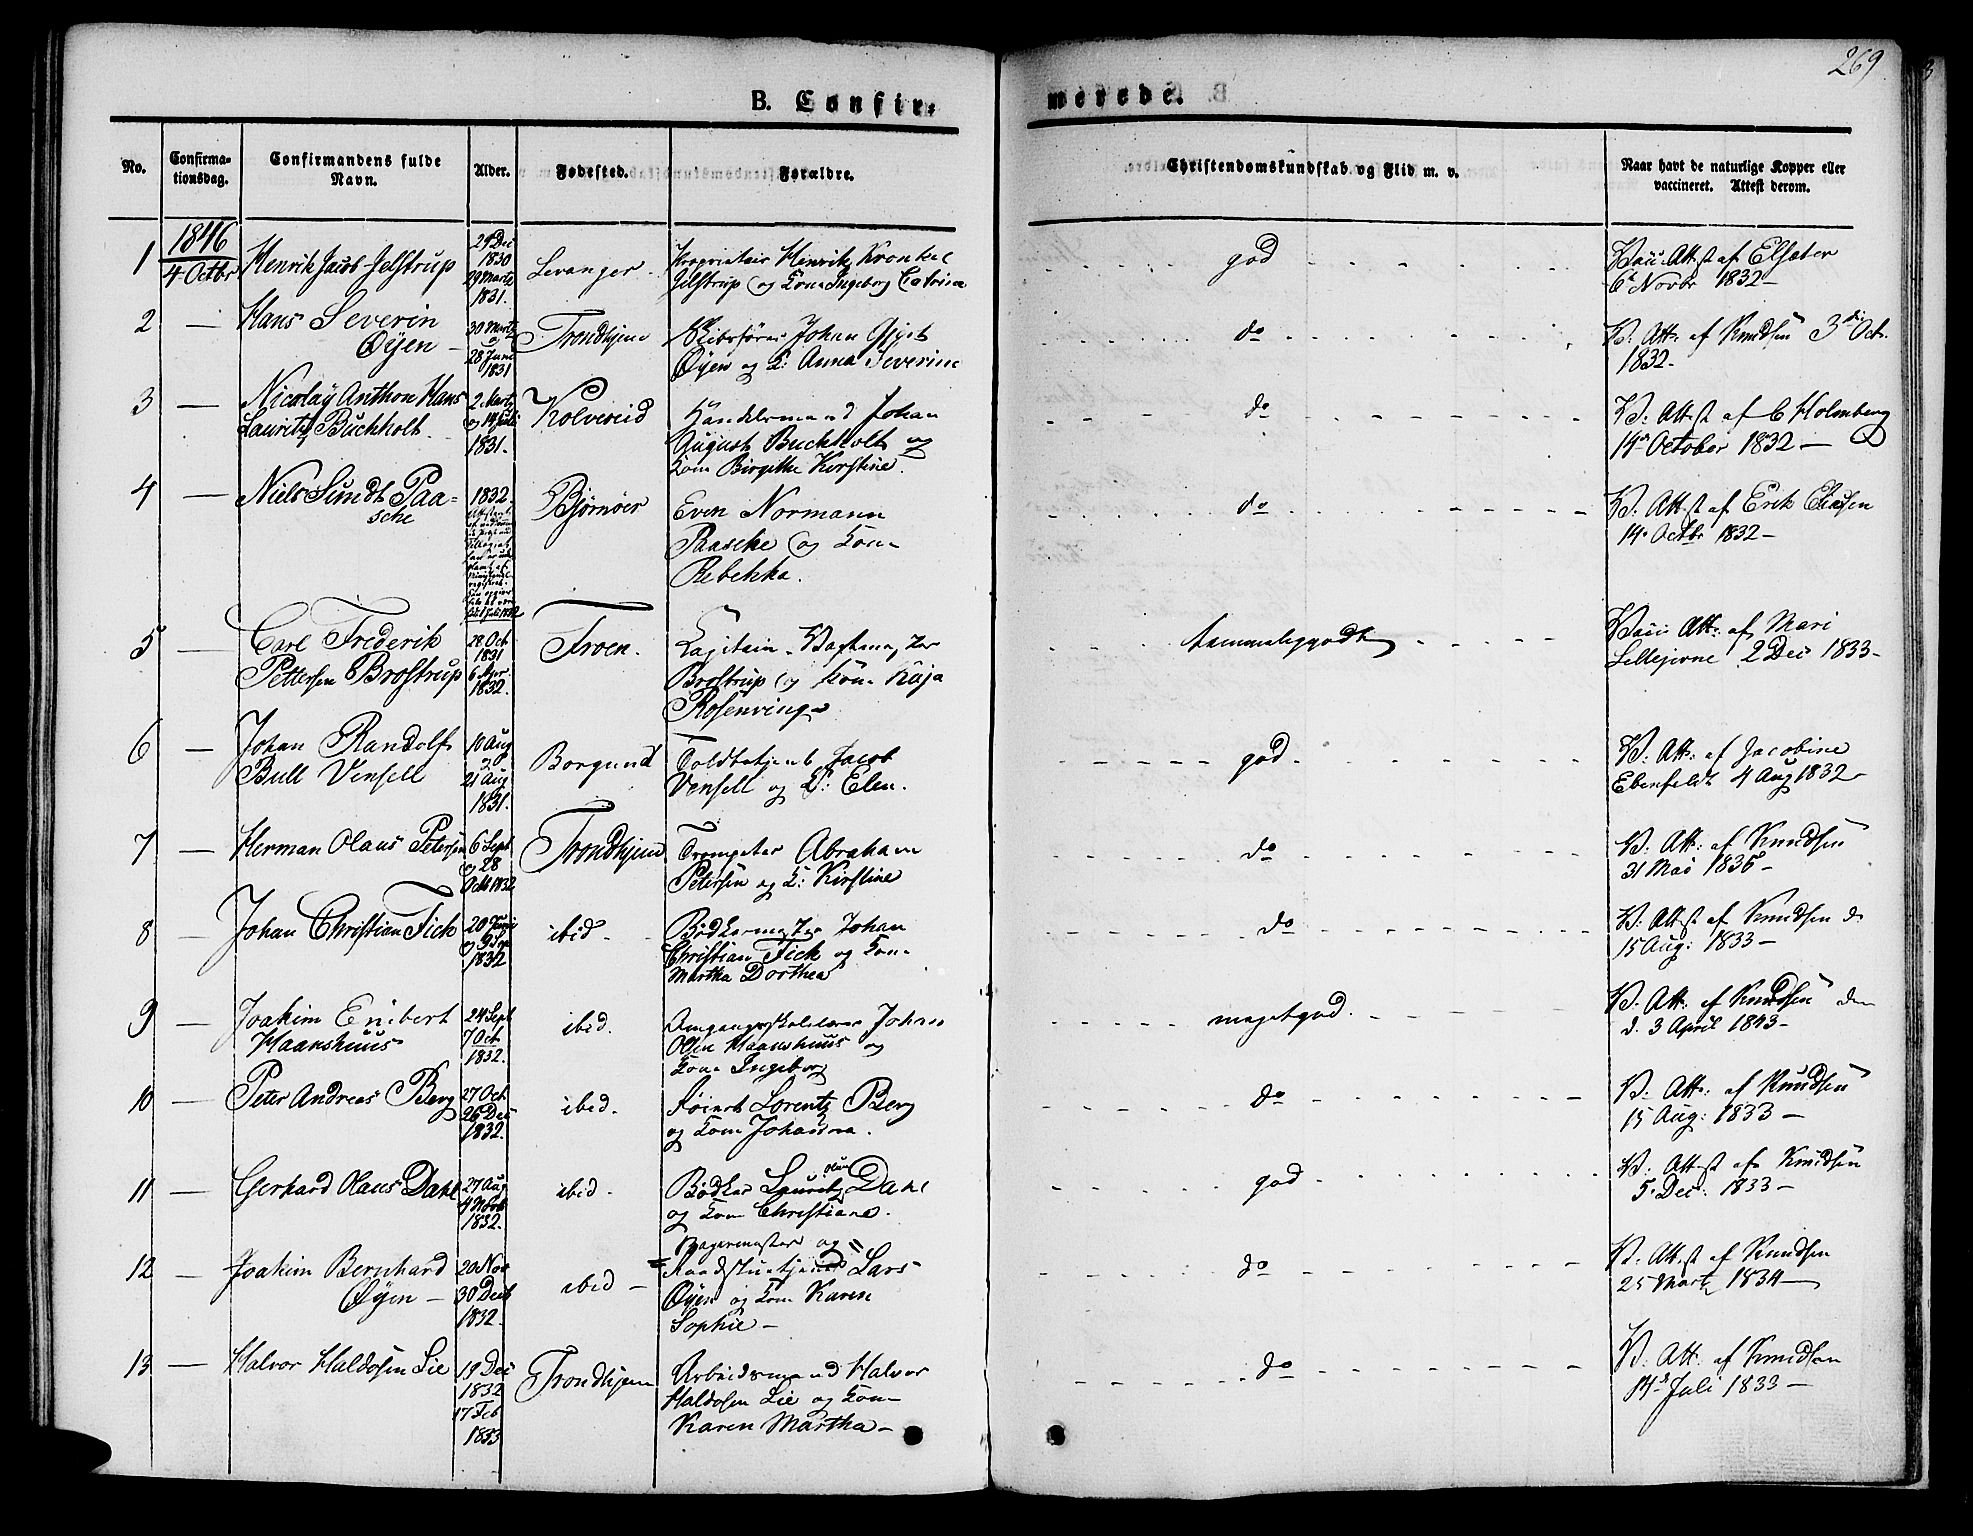 269
B. Confir-
merede.
No.
Confirma-
tionsdag.
Confirmandens fulde
Navn.
Alder.
Fødested.
Forældre.
Christendomskundskab og Flid m. v.
Naar havt de naturlige Kopper eller
vaccineret. Attest derom.
1846
1 4 Octbr Henrik Jacob Jelstrup
29 Dec
1830
29 Marts
1831.
Levanger
Proprietair Henrik Kronkel
Jelstrup og Kone Ingeborg Catrine
god
Vacc. Attst af Elsæter
6te Novbr 1832 —
2 — Hans Severin
Øyen —
30 Marts
28 Juni
1831
Trondhjem
Skibsfører Johan Gjert
Øyen og K: Anna Severine
do
V. Att: af Knudsen 3die Oct.
1832.
3 — Nicolay Anthon Hans
Lauritz Buchholt.
2 Marts
og 14 Juli
1831.
Kolvereid
Handelsmand Johan
August Buchholt og
Kone Birgitte Kirstine.
do
V: Attest af C Holmberg
14de October 1832 —
4 — Niels Sundt Paa-
sche
1832.
Bjørnøer
Even Normann
Paasche og Kone
Rebekka.
do
V. Attst af Erik Eliasen
14. Octbr 1832 —
5 — Carl Frederik
Pettersen Brostrup
28 Oct
1831
6 Apr.
1832.
Troen.
Capitain, Vagtmester
Brostrup og Kone Kaja
Rosenvinge
temmeliggodt
Vacc Att: af Mari
Lillejerne 2 Dec 1833 —
6 — Johan Randolf
Bull Vensell
10 Aug
21 Aug
1831.
Borgund
Toldbetjent Jacob
Vensell og K: Elen.
god
V. Att: af Jacobine
Ebenfeldt 4 Aug 1832 —
7 — Herman Olaus Petersen
6 Sept
og 28
Octb 1832
Trondhjem
Trompeter Abraham
Petersen og K: Kirstine
do
V: Att: af Knudsen
31 Mai 1835 —
8 — Johan Christian Fick
20 Juni
og 9 Sep
1832
ibid.
Bødkermester Johan
Christian Fick og Kone
Martha Dorthea
do
V. Attst af Knudsen d
15 Aug: 1833 —
9 — Joakim Enibert
Haanshuus
24 Sept
7 Oct
1832.
ibid.
Omgangsskolelærer Johan
Olsen Haanshuus og
Kone Ingeborg
megetgod.
V. Att: af Knudsen den
d. 3 April 1843 —
10 — Peter Andreas Berg
27 Oct
26 Dec
1832.
ibid.
Feiert Lorentz Berg
og Kone Johanna.
do
V. Att: af Knudsen
15 Aug: 1833 —
11 — Gerhard Olaus Dahl
27 Aug
1832.
ibid.
Bødker Lauritz Olaus Dahl
og Kone Christiane.
god
V: Attest af Knudsen
5. Dec: 1833 —
12 — Joakim Bernhard
Øyen —
20 Nov
30 Decb
1832.
ibid —
Bagermester og
Raadstuetjener Lars
Øyen og Kone Karen
Sophie —
do
V. Attst af Knudsen
25 Marts 1834 —
13 — Halvor Haldosen Lie
19 Dec
1832
17 Feb
1833
Trondhjem
Arbeidsmand Halvor
Haldosen Lie og Kone
Karen Martha —
do
V. Att. af Knudsen
14de Juli 1833 —